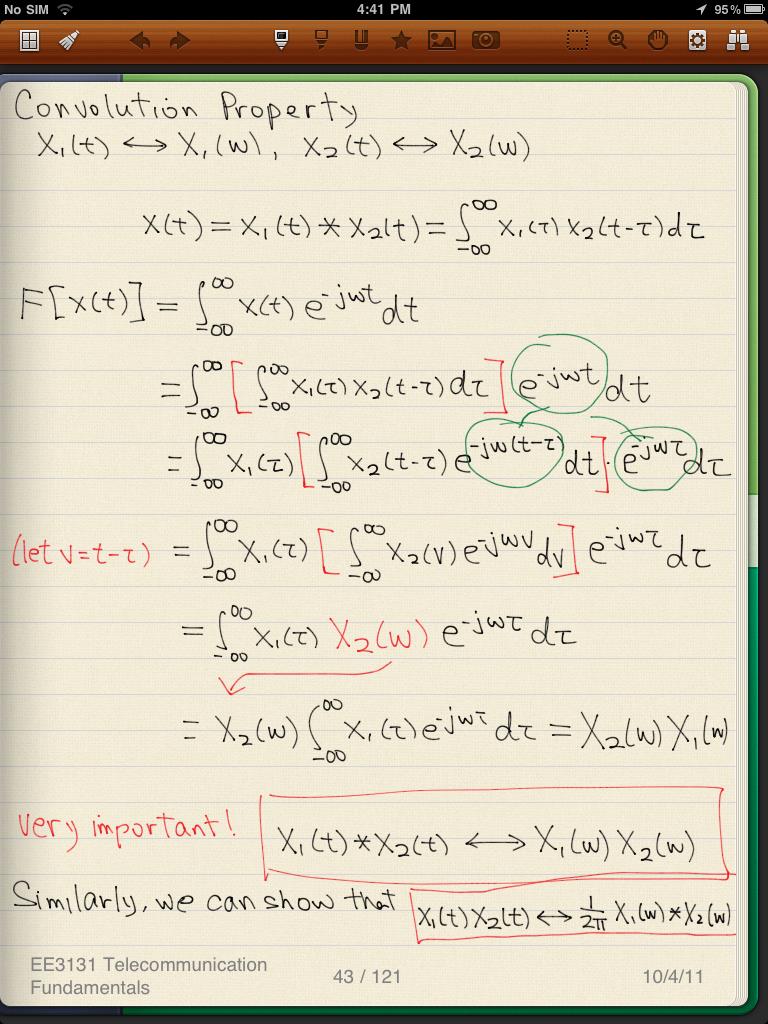 No SIM 4:41 PM 95%
Convolution Property
x₁(t) ↔ X₁(w), x₂(t) ↔ X₂(w)
x(t) = x₁(t) * x₂(t) = ∫_{-∞}^{∞} x₁(τ) x₂(t-τ) dτ
F[x(t)] = ∫_{-∞}^{∞} x(t) e^{-jwt} dt
= ∫_{-∞}^{∞} [ ∫_{-∞}^{∞} x₁(τ) x₂(t-τ) dτ ] e^{-jwt} dt
= ∫_{-∞}^{∞} x₁(τ) [ ∫_{-∞}^{∞} x₂(t-τ) e^{-jw(t-τ)} dt ] · e^{-jwτ} dτ
(let v=t-τ) = ∫_{-∞}^{∞} x₁(τ) [ ∫_{-∞}^{∞} x₂(v) e^{-jwv} dv ] e^{-jwτ} dτ
= ∫_{-∞}^{∞} x₁(τ) X₂(w) e^{-jwτ} dτ
= X₂(w) ∫_{-∞}^{∞} x₁(τ) e^{-jwτ} dτ = X₂(w) X₁(w)
Very important! x₁(t) * x₂(t) ↔ X₁(w) X₂(w)
Similarly, we can show that x₁(t) x₂(t) ↔ \frac{1}{2π} X₁(w) * X₂(w)
EE3131 Telecommunication
Fundamentals 43 / 121 10/4/11